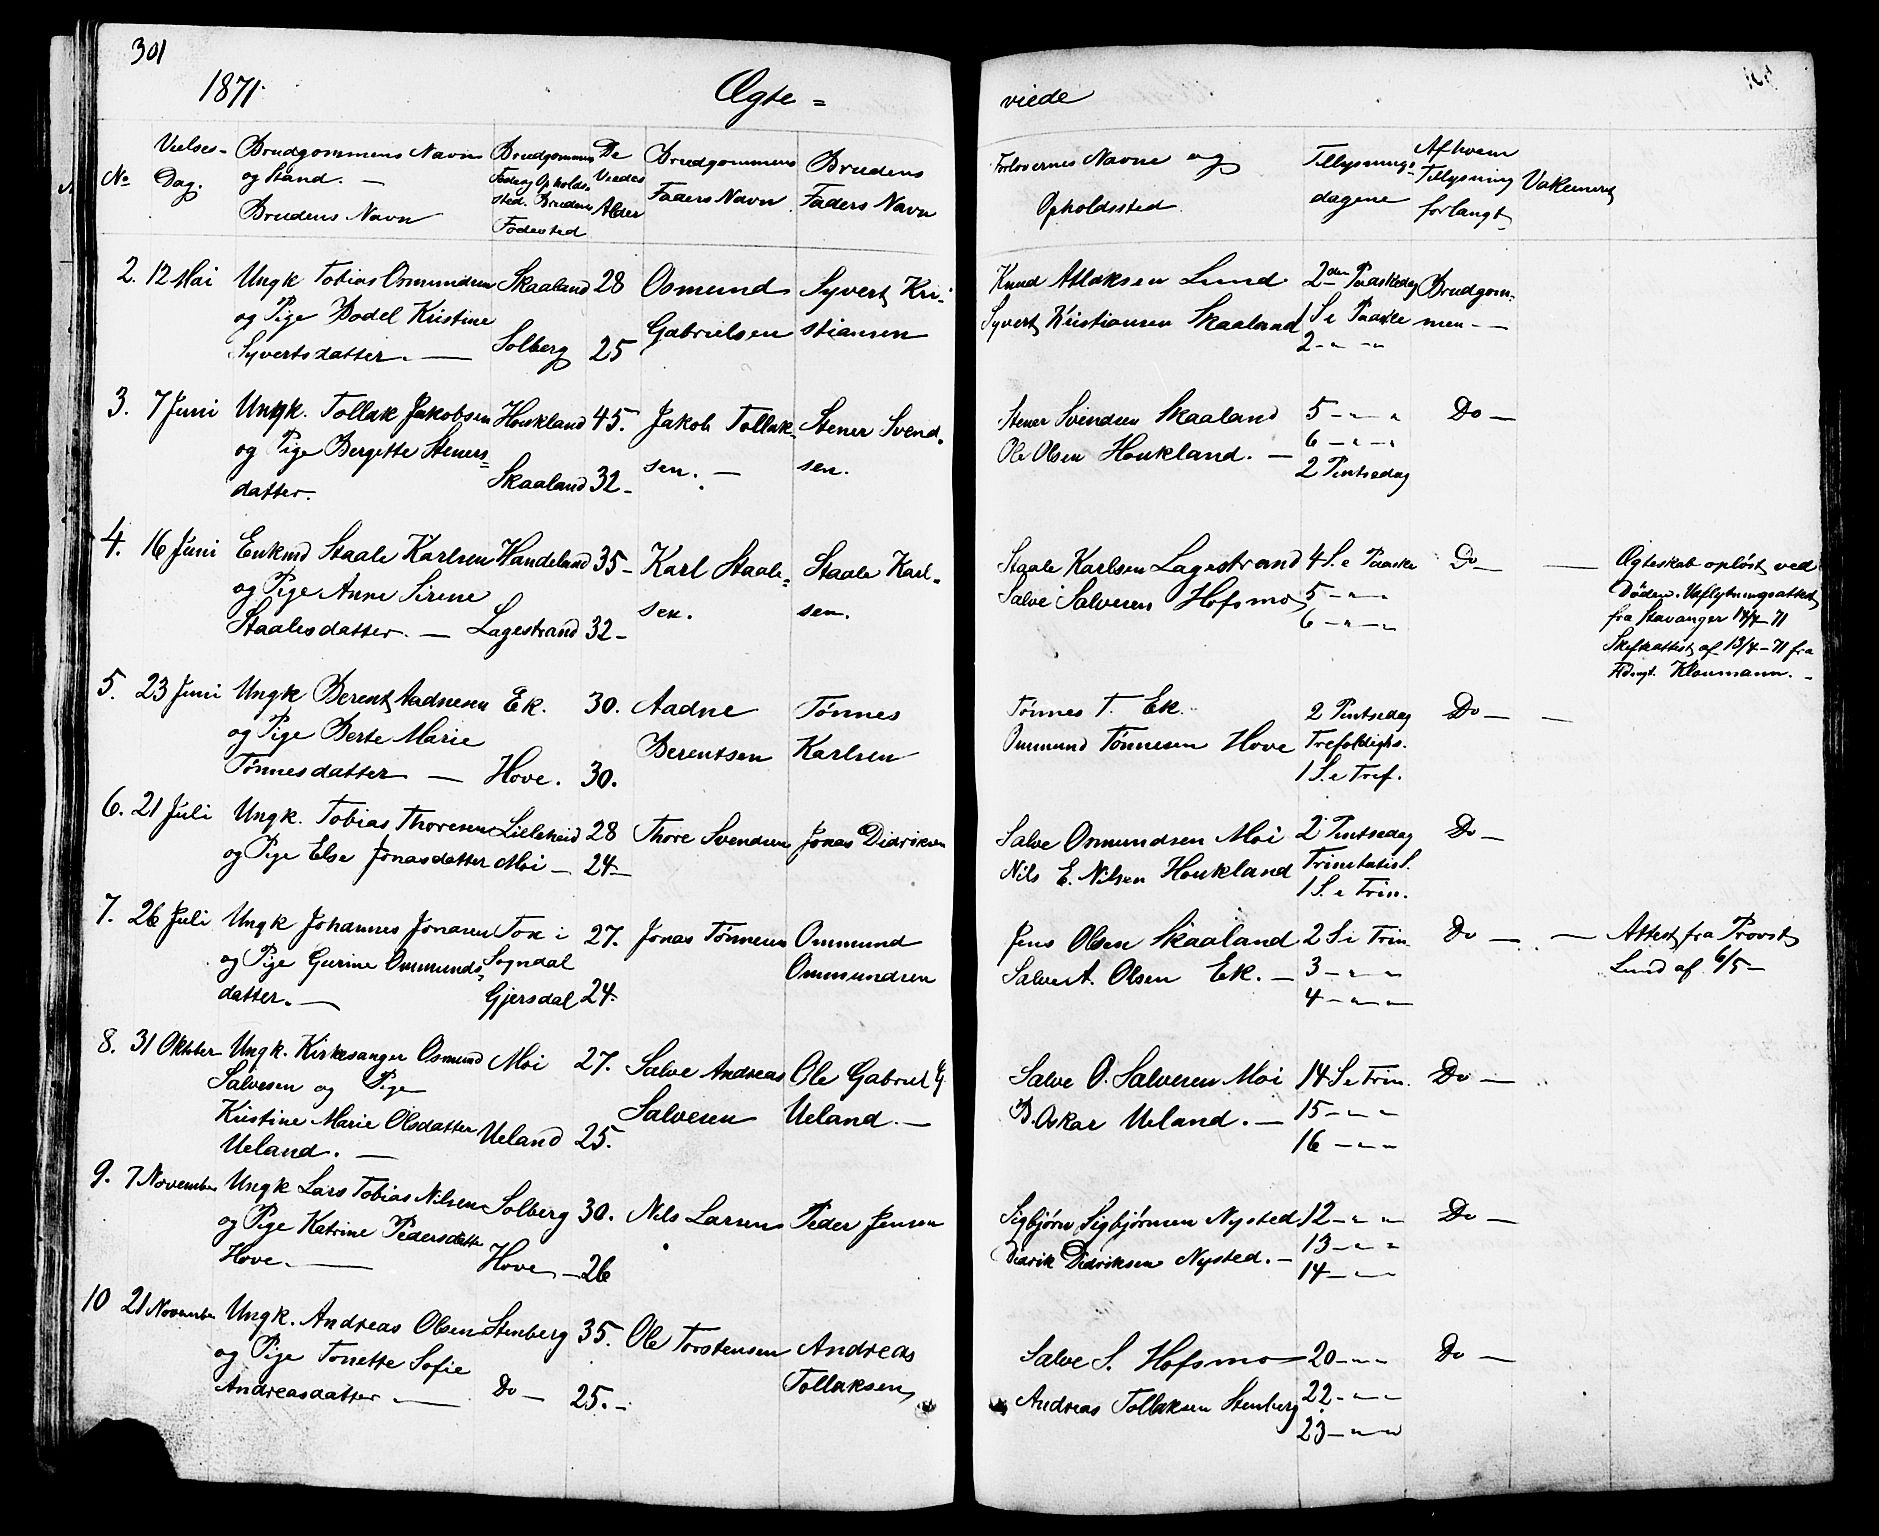 301
1871.
Ægte =
viede
No
Vielses-
Dag.
Brudgommens Navn
og Stand. —
Brudens Navn
Brudgommens
Føde og Opholds-
sted. Brudens
Fødested
De
Viedes
Alder
Brudgommens
Faders Navn
Brudens
Faders Navn
Forlovernes Navne og
Opholdssted
Tillysnings-
dagene
Af hvem
Tillysning
forlangt
Vakcineret
2. 12 Mai Ungk Tobias Osmundsen Skaaland 28 Osmund Syvert Kri-
og Pige Bodel Kristine
Syvertsdatter. — Solberg 25 Gabrielsen stiansen
Knud Atlaksen Lund 2den Paaskedag Brudgom-
Syvert Kristiansen Skaaland 1 S e Paaske men - -
2 - " - "
3. 7 Juni Ungk. Tollak Jakobsen Houkland 45. Jakob Tollak- Stener Svend-
og Pige Bergette Steners= sen. — sen.
datter. Skaaland 32 -
Stener Svendsen Skaaland 5 - " - " Do —
Ole Olsen Houkland. — 6 - " - "
2 Pintsedag
4. 16 Juni Enkmd Staale Karlsen Handeland 35 - Karl Staale= Staale Karl-
og Pige Anne Sirene sen. sen.
Staalesdatter. — Lagestrand 32 -
Staale Karlsen Lagestrand 4 S. e Paaske Do — —
Salve Salvesen Hofsmo 5 - " - "
6 - " - "
Ægteskab opløst ved
Døden. Udflytningsattest
fra Stavanger 14/4 71
Skifteattest af 13/4 - 71 fra
Kloumann. -
5. 23 Juni Ungk Berent Aadnesen Ek. 30. Aadne Tönnes
og Pige Berte Marie
Tönnesdatter — Hove. 30. Berentsen Karlsen
Tönnes T. Ek. 2 Pintsedag Do — —
Ommund Tönnesen Hove Trefoldighs.
1 S. e Tref.
6. 21 Juli Ungk. Tobias Thoresen Lilleheid 28 Thore Svendsen Jonas Didriksen
og Pige Else Jonasdatter Moi — 24 -
Salve Osmundsen Moi 2 Pintsedag Do —
Nils E. Nilsen Houkland Trinitatis S.
1 S. e Trin.
7. 26 Juli Ungk Johannes Jonasen i 27. Jonas Tönnesen Ommund
og Pige Gurine Ommunds= Sogndal Ommundsen
datter. — Gjersdal 24.
Jens Olsen Skaaland 2 S e Trin Do — —
Salve A. Olsen Ek. — 3 - " - "
4 - " - "
Attest fra Provst
Lund af 6/5 —
8. 31 Oktober Ungk. Kirkesanger Osmund Moi 27. Salve Andreas Ole Gabriel G.
Salvesen og Pige
Kristine Marie Olsdatter Ueland 25. Salvesen Ueland. —
Ueland. —
Salve O. Salvesen Moi 14 S e Trin. Do —
B. Oskar Ueland. — 15 - " - "
16 - " - "
9. 7 November Ungk Lars Tobias Nilsen Solberg 30. Nils Larsen Peder Jensen
og Pige Katrine Pedersdatter
Hove. — Hove — 26
Sigbjørn Sigbjørnsen Nysted 12 - " - " Do —
Didrik Didriksen Nysted. — 13 - " - "
14 - " - "
10 21 November Ungk. Andreas Olsen Stenberg 35. Ole Torstensen Andreas
og Pige Tonette Sofie
Andreasdatter — Do — 25. - Tollaksen
Salve S. Hofsmo 20 - " - " Do —
Andreas Tollaksen Stenberg 22 - " - "
23 - " - "